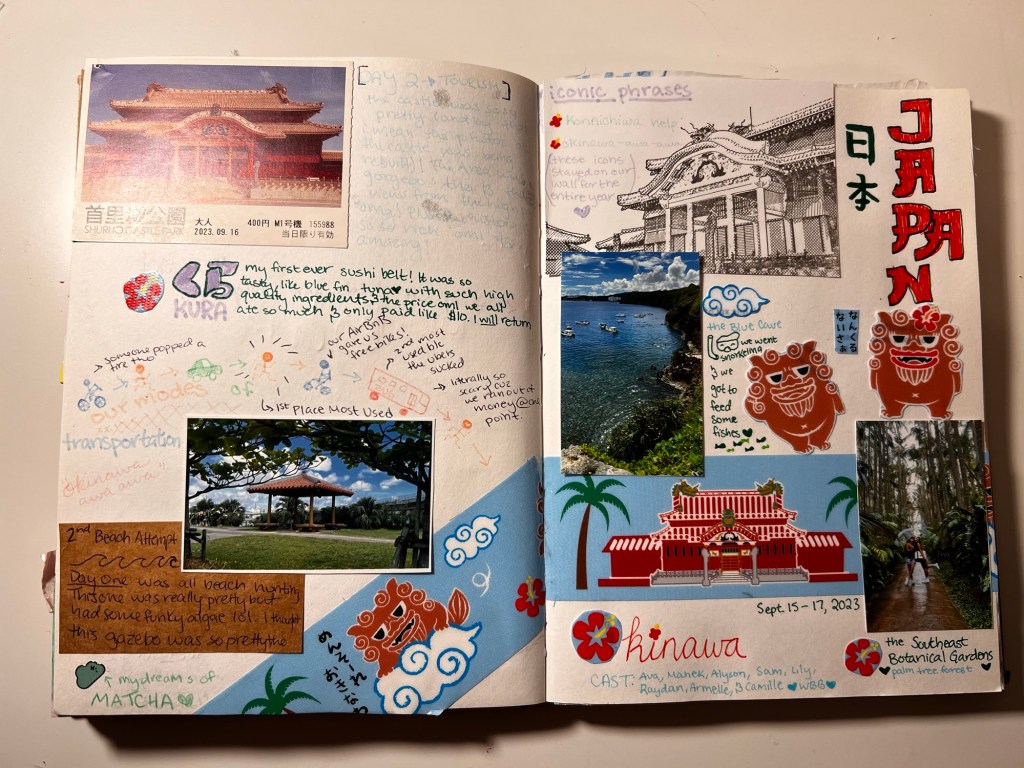 首里城公園
SHURIJO CASTLE PARK
大人 400円 M1号機 155988
2023.09.16 当日限り有効
[DAY 2 → TOURISM]
the castle was so
pretty
being
rebuilt! the
gorgeous
amazing!
くら
KURA
my first ever sushi belt! It was so
tasty, like blue fin tuna♥ with such high
quality ingredients & the price oml we all
ate so much & only paid like $10. I will return
→ someone popped a
tire tho
our AirBnB
gave us
free bikes!
→ 2nd most
used bc
the Ubers
sucked
→ literally so
scary cuz
we ran out of
money @ one
point.
↳ 1st Place Most Used
our modes
of
transportation
Okinawa
awa awa
2nd Beach Attempt
Day One was all beach hunting
This one was really pretty but
had some funky algae lol. I thought
this gazebo was so pretty tho
↑ my dreams of
MATCHA♥
めんそーれ
おきなわ
iconic phrases
Konnichiwa help!
Okinawa-awa-awa
(these icons
stayed on our
wall for the
entire year)
JAPAN
日本
the Blue Cave
we went
snorkeling
& we
got to
feed
some
fishes♥
なんくる
ないさぁ
Sept. 15-17, 2023
Okinawa
CAST: Ava, Manek, Alyson, Sam, Lily,
Raydan, Armelle, & Camille ♥WBB♥
the Southeast
Botanical Gardens
♥ palm tree forest ♥